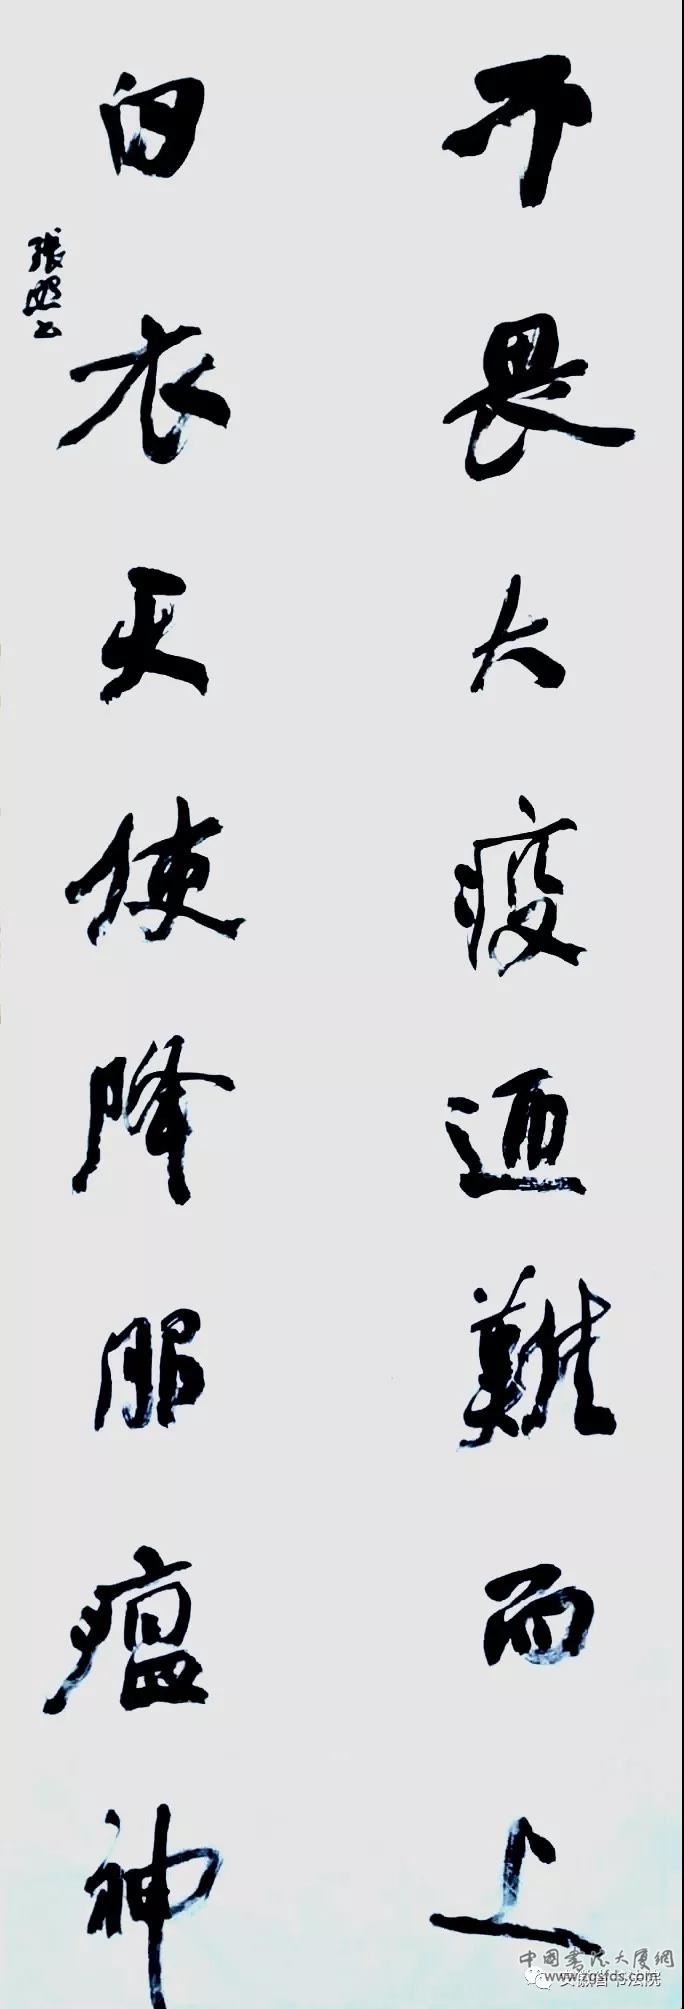 不畏大疫迎難而上
白衣天使降服瘟神
張照書
中國書法大廈網
www.zgsfds.com
安徽省书法院